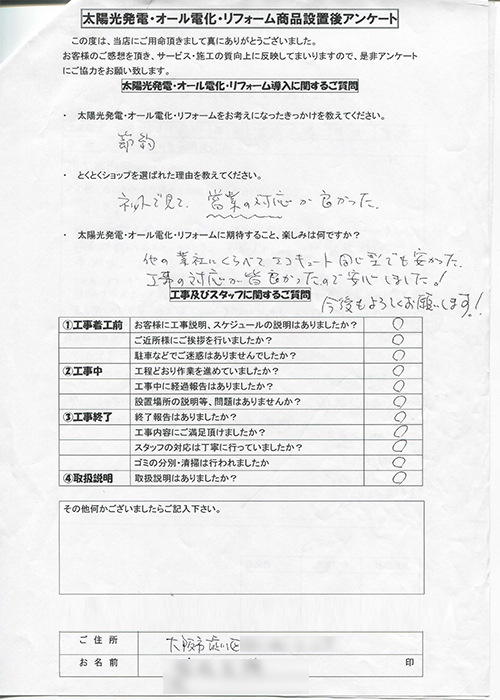 太陽光発電・オール電化・リフォーム商品設置後アンケート
この度は、当店にご用命頂きまして真にありがとうございました。
お客様のご感想を頂き、サービス・施工の質向上に反映してまいりますので、是非アンケート
にご協力をお願い致します。
太陽光発電・オール電化・リフォーム導入に関するご質問
・ 太陽光発電・オール電化・リフォームをお考えになったきっかけを教えてください。
節約
・ とくとくショップを選ばれた理由を教えてください。
ネットで見て、営業の対応が良かった。
・ 太陽光発電・オール電化・リフォームに期待すること、楽しみは何ですか？
他の業社にくらべてエコキュート同じ型でも安かった。
工事の対応が皆良かったので安心しました。!
今後もよろしくお願いします!
工事及びスタッフに関するご質問
①工事着工前 お客様に工事説明、スケジュールの説明はありましたか？ ○
ご近所様にご挨拶を行いましたか？ ○
駐車などでご迷惑はありませんでしたか？ ○
②工事中 工程どおり作業を進めていましたか？ ○
工事中に経過報告はありましたか？ ○
設置場所の説明等、問題はありませんか？ ○
③工事終了 終了報告はありましたか？ ○
工事内容にご満足頂けましたか？ ○
スタッフの対応は丁寧に行っていましたか？ ○
ゴミの分別・清掃は行われましたか ○
④取扱説明 取扱説明はありましたか？ ○
その他何かございましたらご記入下さい。
ご住所 大阪市
お名前 印